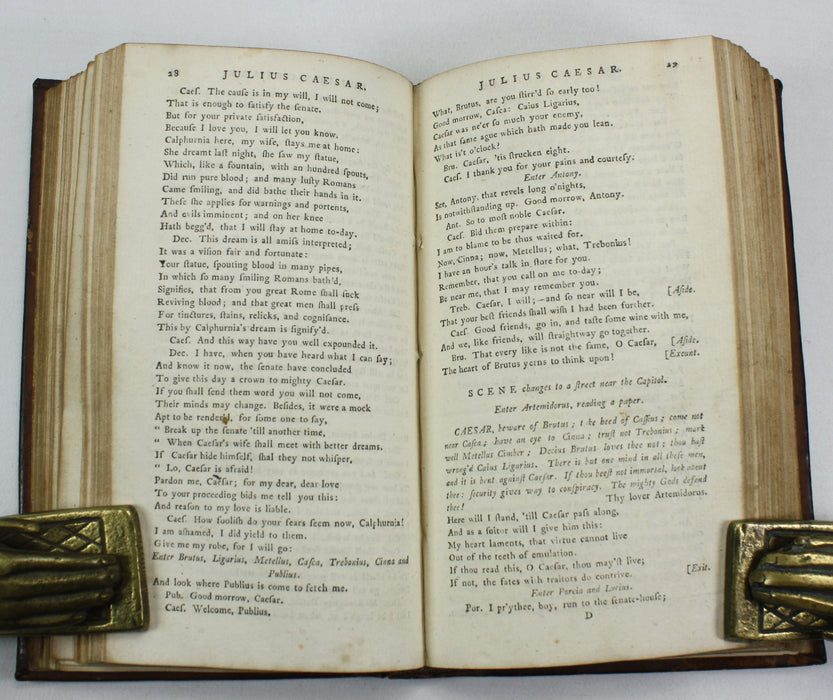 28 JULIUS CAESAR.
Cæſ. The cauſe is in my will, I will not come;
That is enough to ſatisfy the ſenate.
But for your private ſatisfaction,
Becauſe I love you, I will let you know.
Calphurnia here, my wife, ſtays me at home:
She dreamt laſt night, ſhe ſaw my ſtatue,
Which, like a fountain, with an hundred ſpouts,
Did run pure blood; and many luſty Romans
Came ſmiling, and did bathe their hands in it.
Theſe ſhe applies for warnings and portents,
And evils imminent; and on her knee
Hath begg'd, that I will ſtay at home to-day.
Dec. This dream is all amiſs interpreted;
It was a viſion fair and fortunate:
Your ſtatue, ſpouting blood in many pipes,
In which ſo many ſmiling Romans bath'd,
Signifies, that from you great Rome ſhall ſuck
Reviving blood; and that great men ſhall preſs
For tinctures, ſtains, relicks, and cogniſance.
This by Calphurnia's dream is ſignify'd.
Cæſ. And this way have you well expounded it.
Dec. I have, when you have heard what I can ſay;
And know it now, the ſenate have concluded
To give this day a crown to mighty Caeſar.
If you ſhall ſend them word you will not come,
Their minds may change. Beſides, it were a mock
Apt to be render'd, for ſome one to ſay,
" Break up the ſenate 'till another time,
" When Caeſar's wife ſhall meet with better dreams.
If Caeſar hide himſelf, ſhal they not whiſper,
" Lo, Caeſar is afraid!
Pardon me, Caeſar; for my dear, dear love
To your proceeding bids me tell you this:
And reaſon to my love is liable.
Caeſ. How fooliſh do your fears ſeem now, Calphurnia!
I am aſhamed, I did yield to them.
Give me my robe, for I will go:
Enter Brutus, Ligarius, Metellus, Caſca, Trebonius, Cinna and
Publius.
And look where Publius is come to fetch me.
Pub. Good morrow, Caeſar.
Caeſ. Welcome, Publius.
JULIUS CAESAR. 29
What, Brutus, are you ſtirr'd ſo early too!
Good morrow, Caſca: Caius Ligarius,
Caeſar was ne'er ſo much your enemy,
As that ſame ague which hath made you lean.
What is't o'clock?
Bru. Caeſar, 'tis ſtrucken eight.
Caeſ. I thank you for your pains and courteſy.
Enter Antony.
See, Antony, that revels long o'nights,
Is notwithſtanding up. Good morrow, Antony.
Ant. So to moſt noble Caeſar.
Caeſ. Bid them prepare within:
I am to blame to be thus waited for.
Now, Cinna; now, Metellus; what, Trebonius!
I have an hour's talk in ſtore for you.
Remember, that you call on me to-day;
Be near me, that I may remember you.
Treb. Caeſar, I will;—and ſo near will I be, [Aſide.
That your beſt friends ſhall wiſh I had been further.
Caeſ. Good friends, go in, and taſte ſome wine with me,
And we, like friends, will ſtraightway go together.
Bru. That every like is not the ſame, O Caeſar, [Aſide.
The heart of Brutus yerns to think upon! [Exeunt.
SCENE changes to a ſtreet near the Capitol.
Enter Artemidorus, reading a paper.
CAESAR, beware of Brutus; take heed of Caſſius; come not
near Caſca; have an eye to Cinna; truſt not Trebonius; mark
well Metellus Cimber; Decius Brutus loves thee not; thou haſt
wrong'd Caius Ligarius. There is but one mind in all theſe men,
and it is bent againſt Caeſar. If thou beeſt not immortal, look about
thee: ſecurity gives way to conſpiracy. The mighty Gods defend
thee! Thy lover Artemidorus.
Here will I ſtand, 'till Caeſar paſs along,
And as a ſuitor will I give him this:
My heart laments, that virtue cannot live
Out of the teeth of emulation.
If thou read this, O Caeſar, thou may'ſt live;
If not, the fates with traitors do contrive. [Exit.
Enter Porcia and Lucius.
Por. I pr'ythee, boy, run to the ſenate-houſe;
D